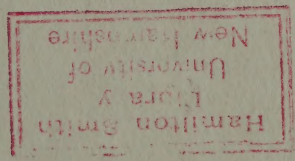 Hamilton Smith
Library
University of
New Hampshire